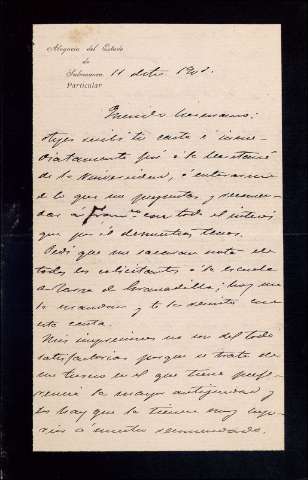 Abogacía del Estado
de
Salamanca
Particular
11 Octe 190
Querido hermano:
Ayer recibí tu carta é inme-
diatamente fuí á la Secretaría
de la Universidad, á enterarme
de lo que me preguntas y recomen-
dar á con todo el interés
que por él demuestras tener.
Pedí que me sacaran nota de
todos los solicitantes á la escuela
de Granadilla; hoy me
la mandan y te la remito con
esta carta.
Mis impresiones no son del todo
satisfactorias porque se trata de
un turno en el que tiene prefe-
rencia la mayor antigüedad y
los hay que la tienen muy supe-
rior á nuestro recomendado.